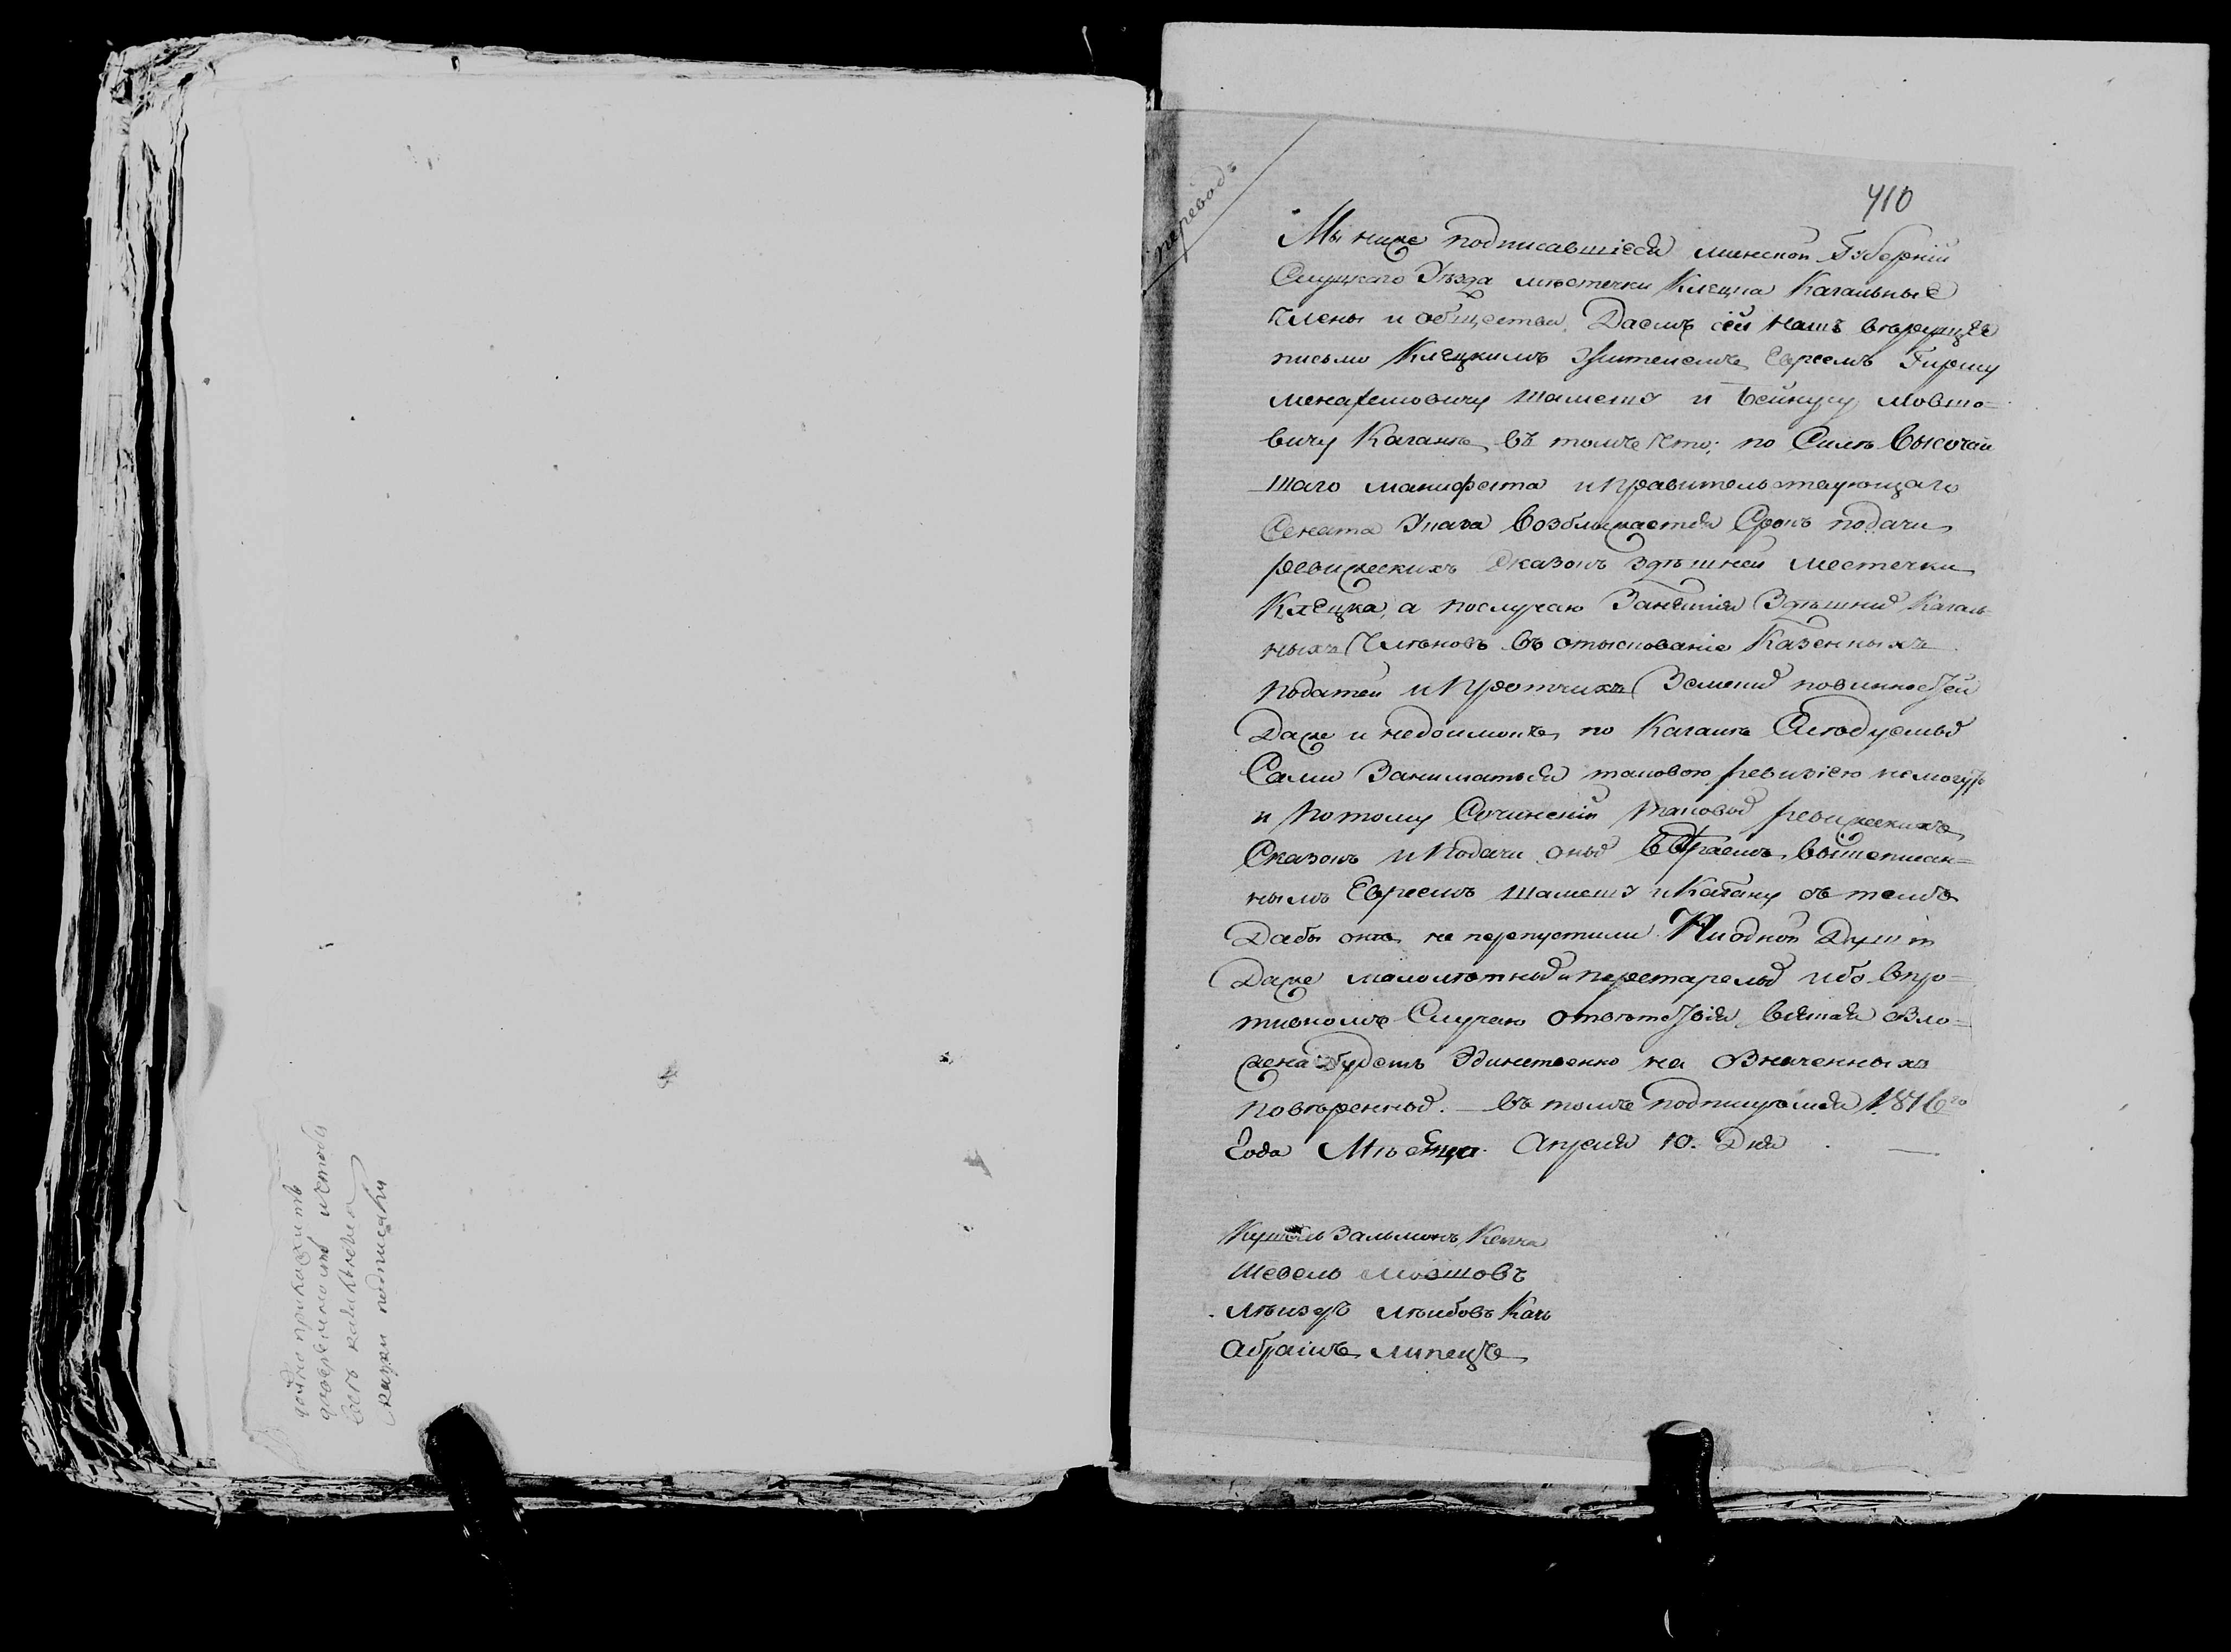 переводъ
410
Мы ниже подписавшіеся минской Губерніи
Слуцкаго Уѣзда мѣстечки Клецка Кагальные
Члены и общества, Даемъ сей нашъ вѣрующее
письмо Клецкимъ Жителемъ Евреемъ Гиршу
менахемовичу Шамешу и Бейнусу Мовшо-
вичу Кагану въ томъ что; по Силѣ Высочай
шаго манифеста и правительствующаго
Сената Указа возближается Срокъ подачи
ревижескихъ Сказокъ здѣшней местечки
Клецка, а послучаю Занетія Здѣшних Кагаль
ныхъ Члѣновъ въ отыскованіе Казенныхъ
податей и Протчихъ Земених повинностей
Даже и недоимокъ по Кагалѣ Слѣдуемых
Сами Заниматься таковою ревизіею не могутъ
и Потому Сочиненіи таковых ревижескихъ
Сказокъ и подачи оных вверяемъ вышеписан=
нымъ Евреемъ Шамешу и Кагану съ темъ
Дабы онѣ не перепустили Ни одной Души
Даже малолѣтных и перетарелых ибо впро=
тивномъ Случаю отвѣтствія взятая Вло=
жена будетъ Единственно на Означенныхъ
повѣренных. — Въ томъ подписуемся 1816го
Года Мѣсяца Апреля 10. Дня
Зальмонъ
Шевель Мовшовъ
Лѣизеръ Лѣибовъ Кацъ
Абрамъ Липецъ
годно приложить
есть
скаски подписаны